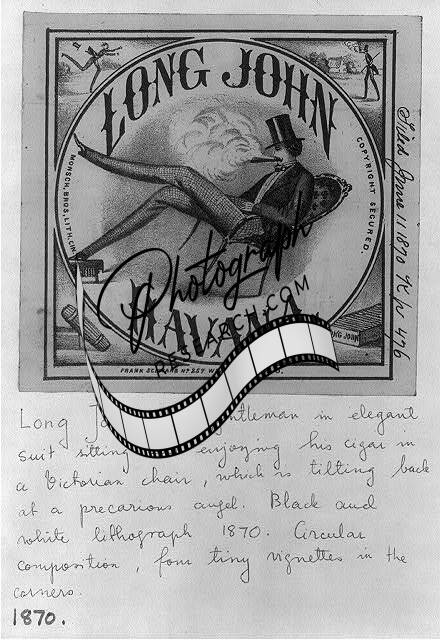 LONG JOHN
MONSCH, BROS, LITH, CIN
COPYRIGHT SECURED.
Filed June 11 1870
476
Photograph
RESEARCH.COM
HAVANA
LONG JOHN
FRANK
Long gentleman in elegant
suit sitting enjoying his cigar in
a Victorian chair, which is tilting back
at a precarious angel. Black and
white lithograph 1870. Circular
composition, four tiny vignettes in the
corners.
1870.